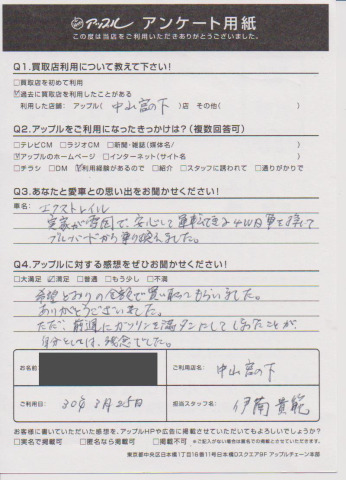 アップル アンケート用紙
この度は当店をご利用いただきありがとうございました。
Q1.買取店利用について教えて下さい!
□買取店を初めて利用
☑過去に買取店を利用したことがある
利用した店舗: アップル(中山宮の下)店 その他( )
Q2.アップルをご利用になったきっかけは?(複数回答可)
□テレビCM □ラジオCM □新聞・雑誌(媒体名/ )
☑アップルのホームページ □インターネット(サイト名 )
□チラシ □DM ☑利用経験があるので □紹介 □スタッフに誘われて □通りがかりで
Q3.あなたと愛車との思い出をお聞かせください!
車名: エクストレイル
実家が雪国で、安心して運転できる4WD車を探して
ブルーバードから乗り換えました。
Q4.アップルに対する感想をぜひお聞かせください!
□大満足 ☑満足 □普通 □もう少し □不満
希望どおりの金額で買い取ってもらいました。
ありがとうございました。
ただ、前週にガソリンを満タンにしてしまったことが、
自分としては、残念でした。
お名前
ご利用店名: 中山宮の下
ご利用日: 30年3月25日
担当スタッフ名: 伊南 貴範
お客様に書いていただいた感想を、アップルHPや広告に掲載させていただいてもよろしいでしょうか?
□実名で掲載可 □匿名なら掲載可 □掲載不可 ※ご記入がない場合は匿名での掲載とさせていただきます。
東京都中央区日本橋1丁目16番11号日本橋Dスクエア8F アップルチェーン本部